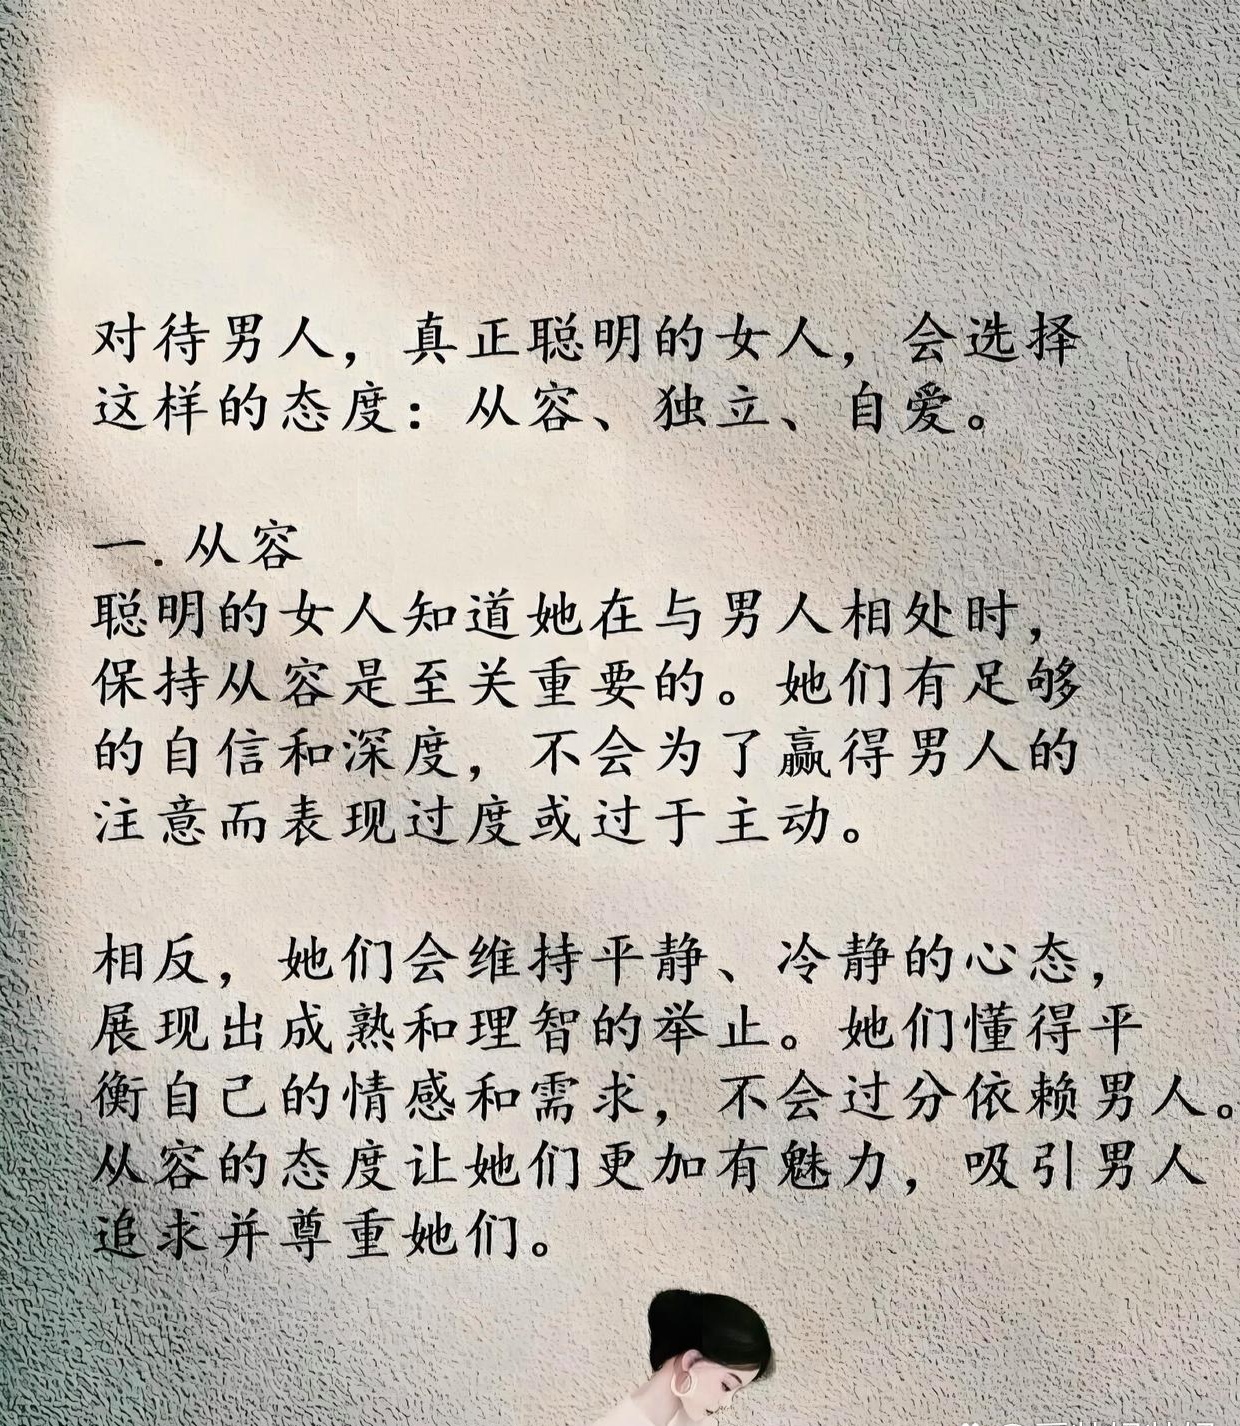 对待男人，真正聪明的女人，会选择
这样的态度：从容、独立、自爱。
一.从容
聪明的女人知道她在与男人相处时，
保持从容是至关重要的。她们有足够
的自信和深度，不会为了赢得男人的
注意而表现过度或过于主动。
相反，她们会维持平静、冷静的心态，
展现出成熟和理智的举止。她们懂得平
衡自己的情感和需求，不会过分依赖男人。
从容的态度让她们更加有魅力，吸引男人
追求并尊重她们。